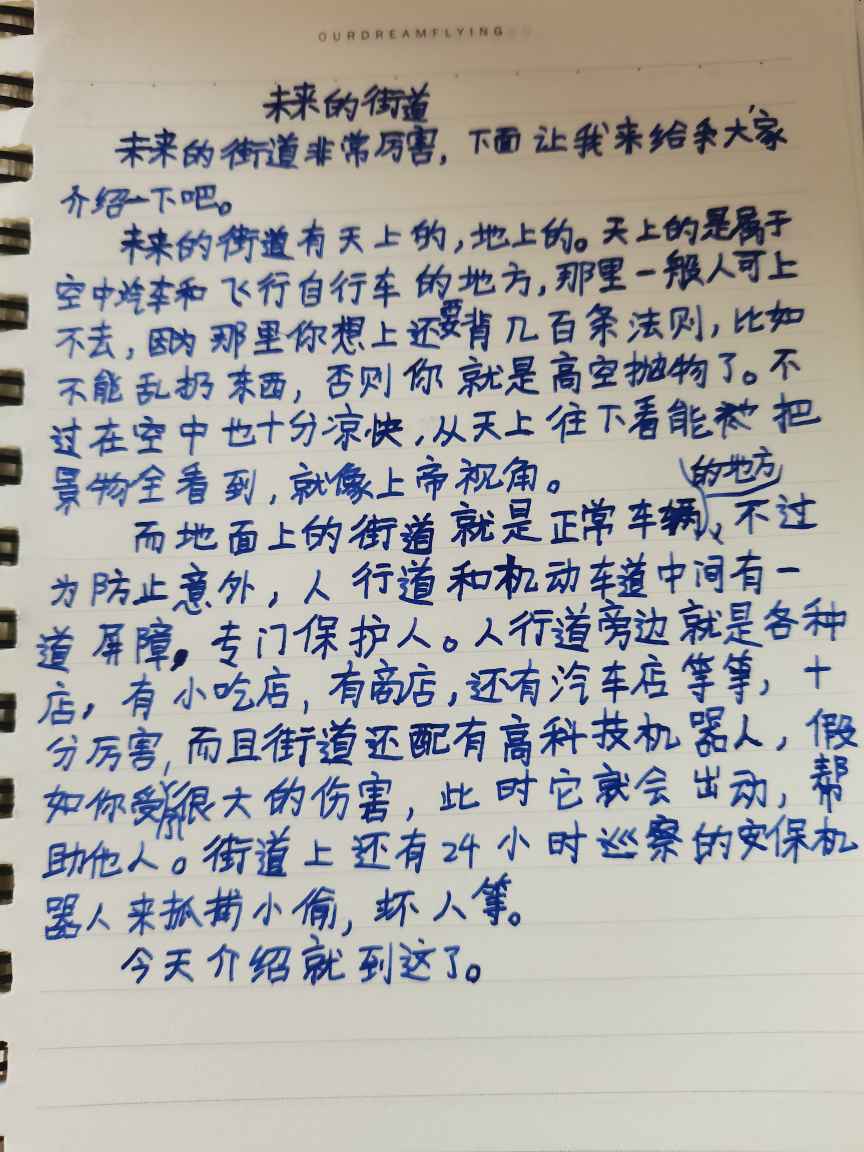 OURDREAMFLYING
未来的街道
未来的街道非常厉害，下面让我来给大家
介绍一下吧。
未来的街道有天上的，地上的。天上的是属于
空中汽车和飞行自行车的地方，那里一般人可上
不去，因为那里你想上还要背几百条法则，比如
不能乱扔东西，否则你就是高空抛物了。不
过在空中也十分凉快，从天上往下看能把
景物全看到，就像上帝视角。
的地方
而地面上的街道就是正常车辆，不过
为防止意外，人行道和机动车道中间有一
道屏障，专门保护人。人行道旁边就是各种
店，有小吃店，有商店，还有汽车店等等，十
分厉害，而且街道还配有高科技机器人，假
如你受到很大的伤害，此时它就会出动，帮
助他人。街道上还有24小时巡察的安保机
器人来抓捕小偷，坏人等。
今天介绍就到这了。